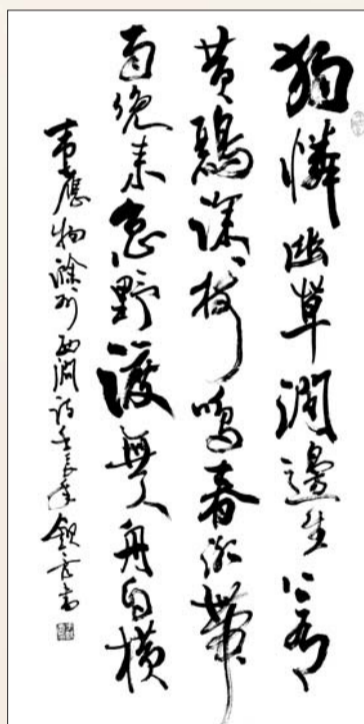 獨憐幽草澗邊生上有
黃鸝深樹鳴春潮帶
雨晚來急野渡無人舟自橫
韋應物滁州西澗詩 書